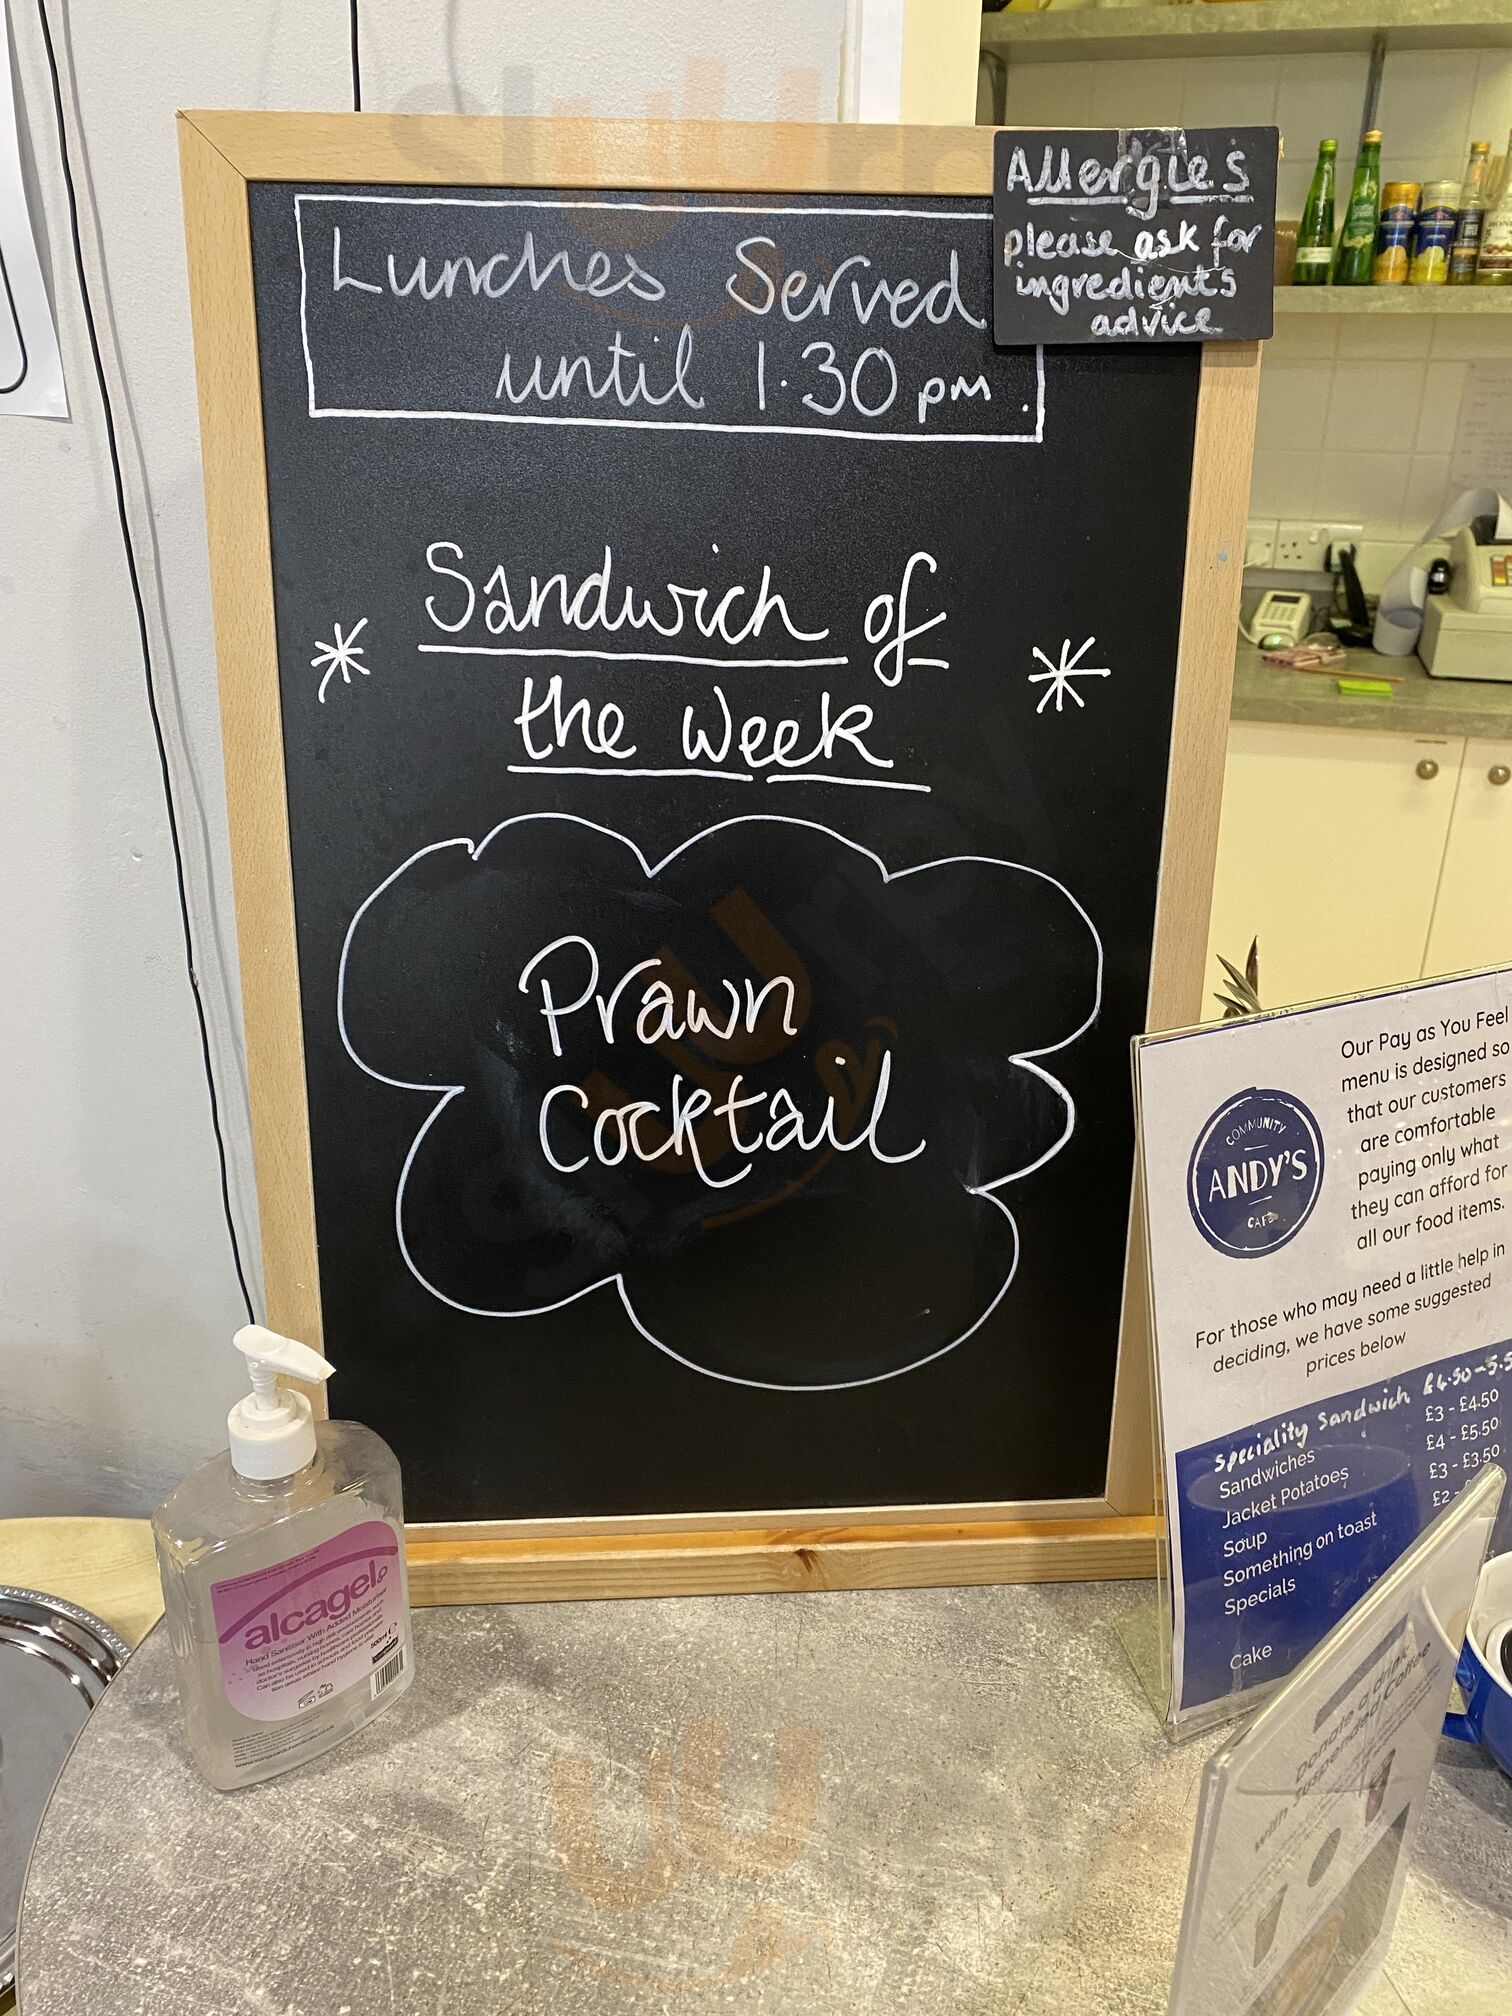 Lunches Served
until 1.30 pm.
Allergies
please ask for
ingredients
advice
Sandwich of
the Week
Prawn
Cocktail
Our Pay as You Feel
menu is designed so
that our customers
are comfortable
paying only what
they can afford for
all our food items.
COMMUNITY
ANDY'S
CAFE
For those who may need a little help in
deciding, we have some suggested
prices below
Speciality Sandwich £4.50-5.5
Sandwiches £3 - £4.50
Jacket Potatoes £4 - £5.50
Soup £3 - £3.50
Something on toast £2
Specials
Cake
Donate a drink
with Suspended Coffee
alcagel
Hand Sanitiser With Added Moisturiser
500ml e